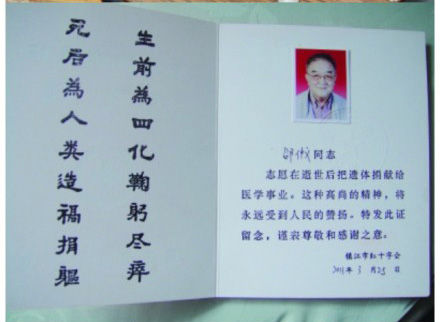 生前為四化鞠躬尽瘁
死后為人类造福捐軀
邵傲同志
志愿在逝世后把遗体捐献给
医学事业。这种高尚的精神，将
永远受到人民的赞扬。特发此证
留念，谨表尊敬和感谢之意。
镇江市红十字会
2011年3月25日